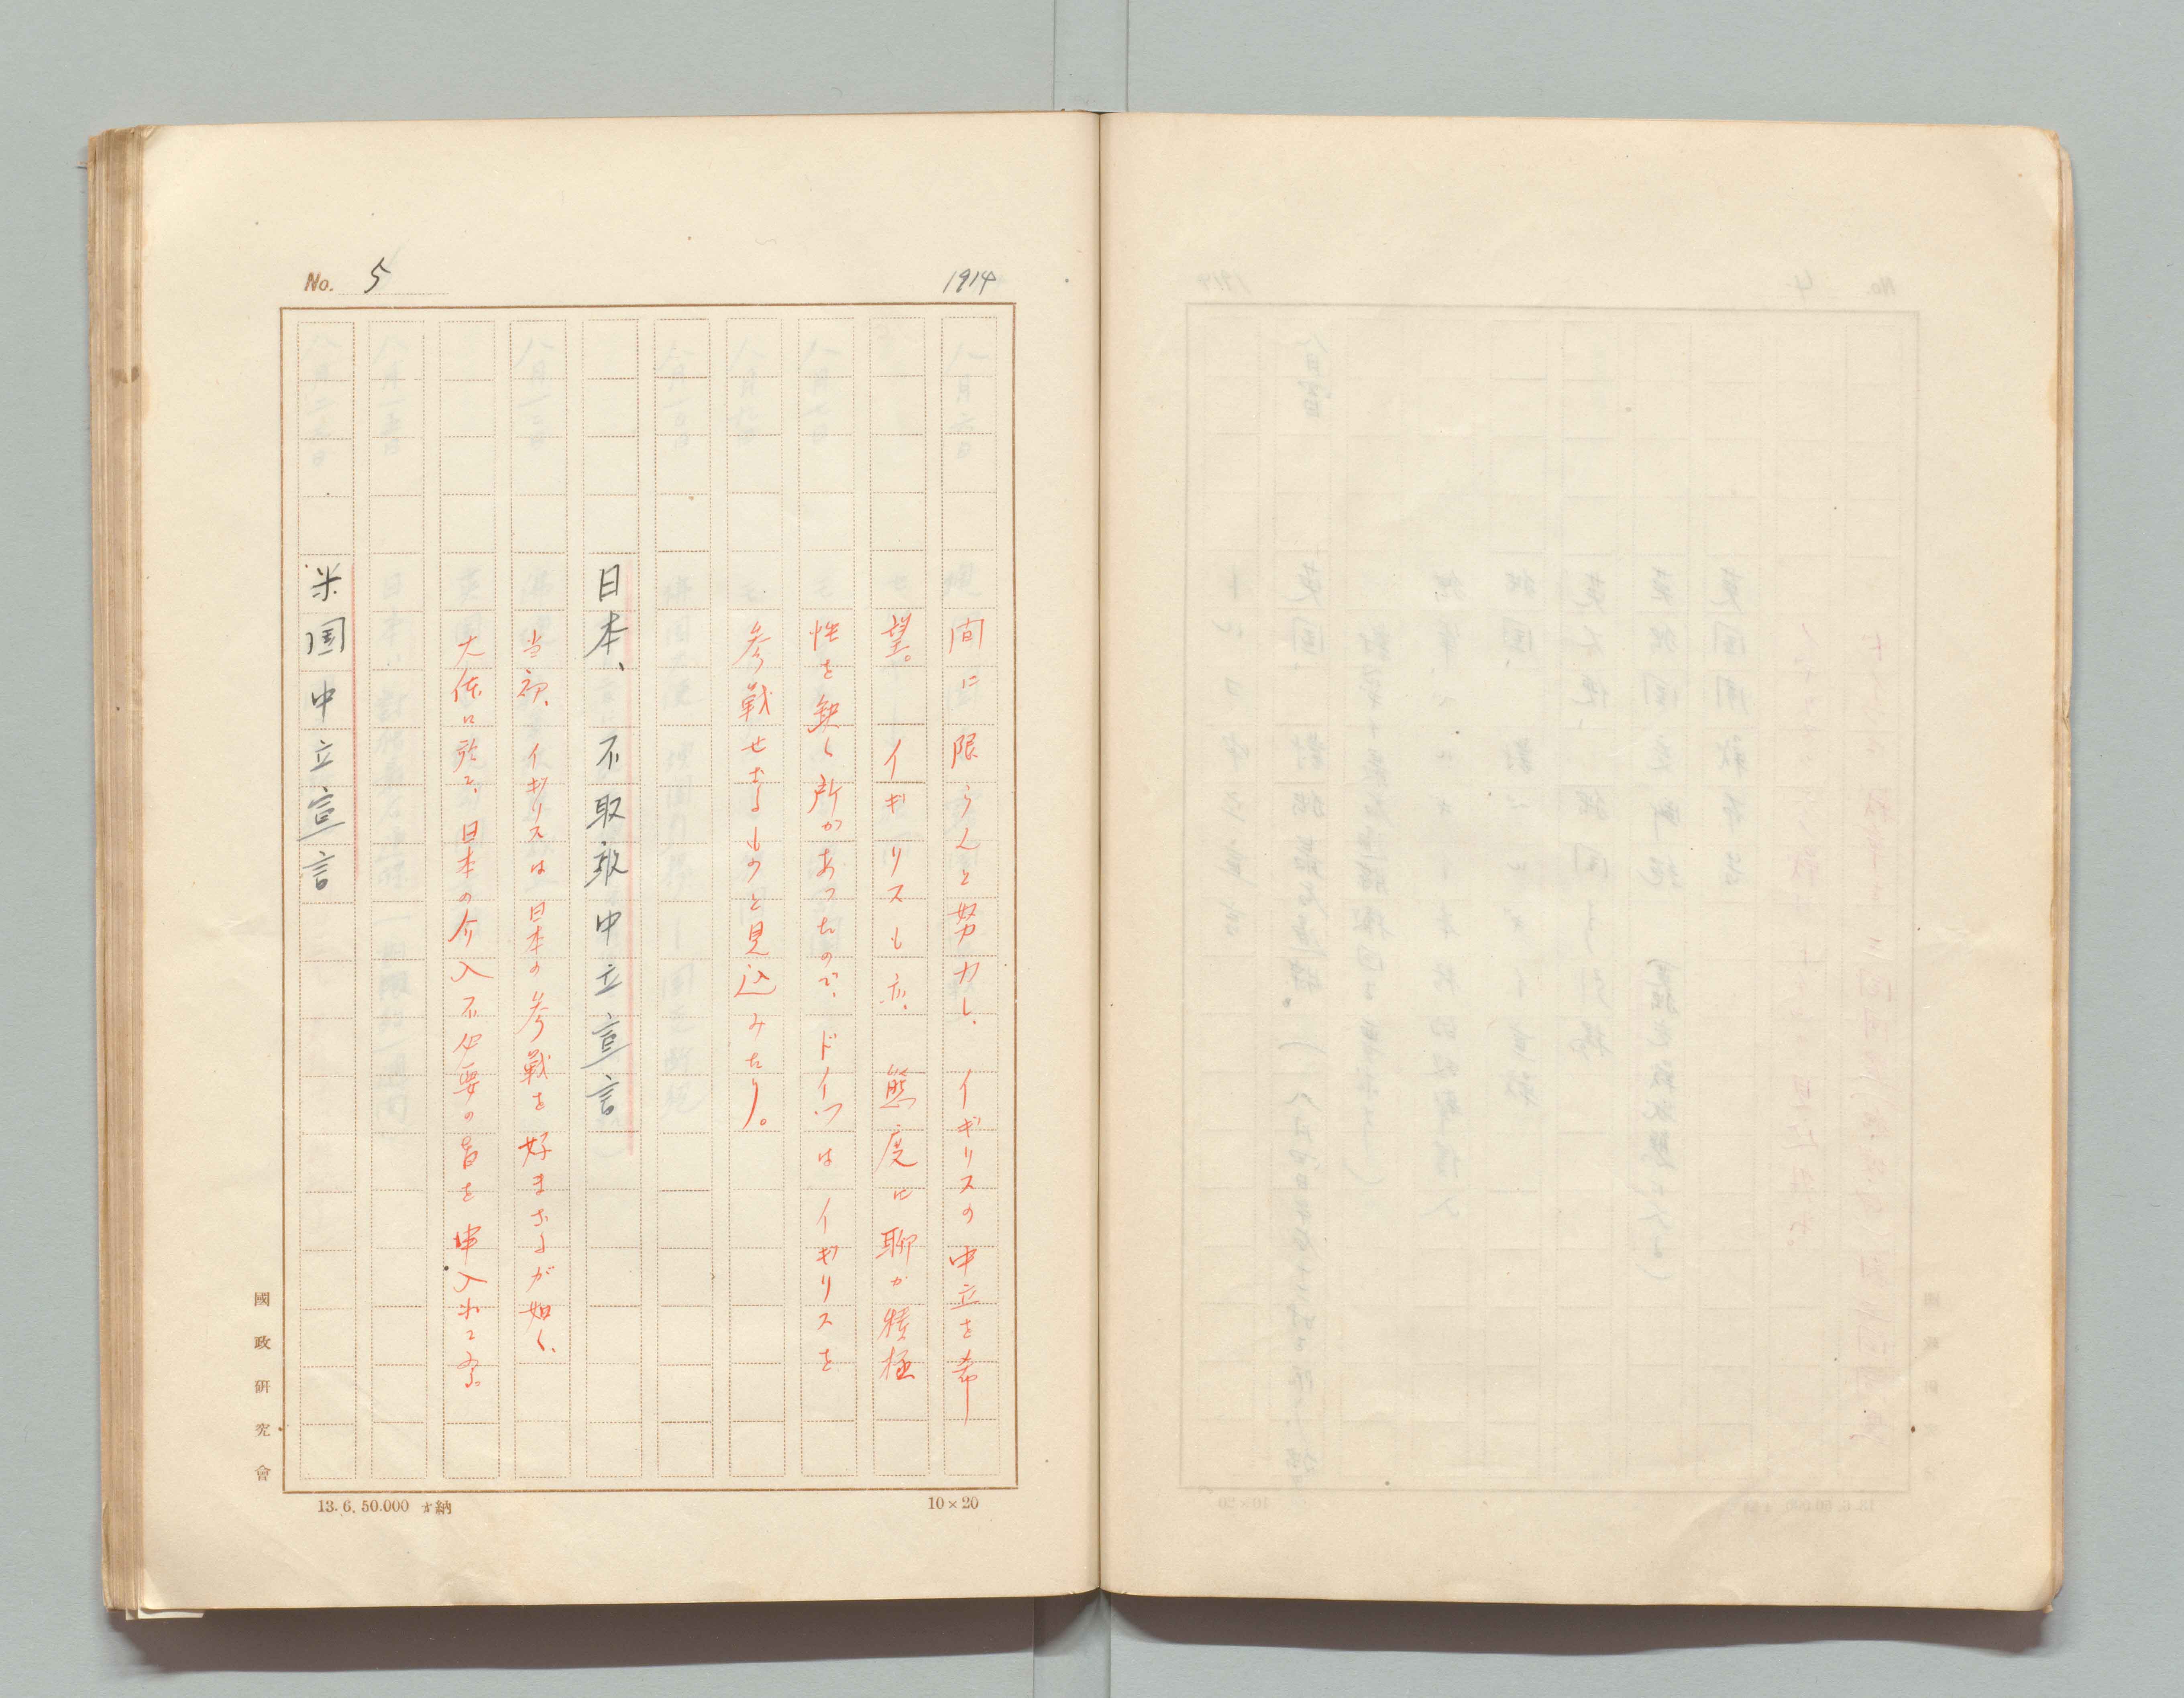 No. 5
1914
間に限らんと努力し、イギリスの中立を希
望。イギリスも亦、態度に聊か積極
性を欠く所があつたので、ドイツはイギリスを
参戦せざるものと見込みたり。
日本、不取敢中立宣言
当初、イギリスは日本の参戦を好まざるが如く、
大体に於て、日本の介入不必要の旨を申入れて来
米国中立宣言
國政研究會
13.6.50.000 納
10×20